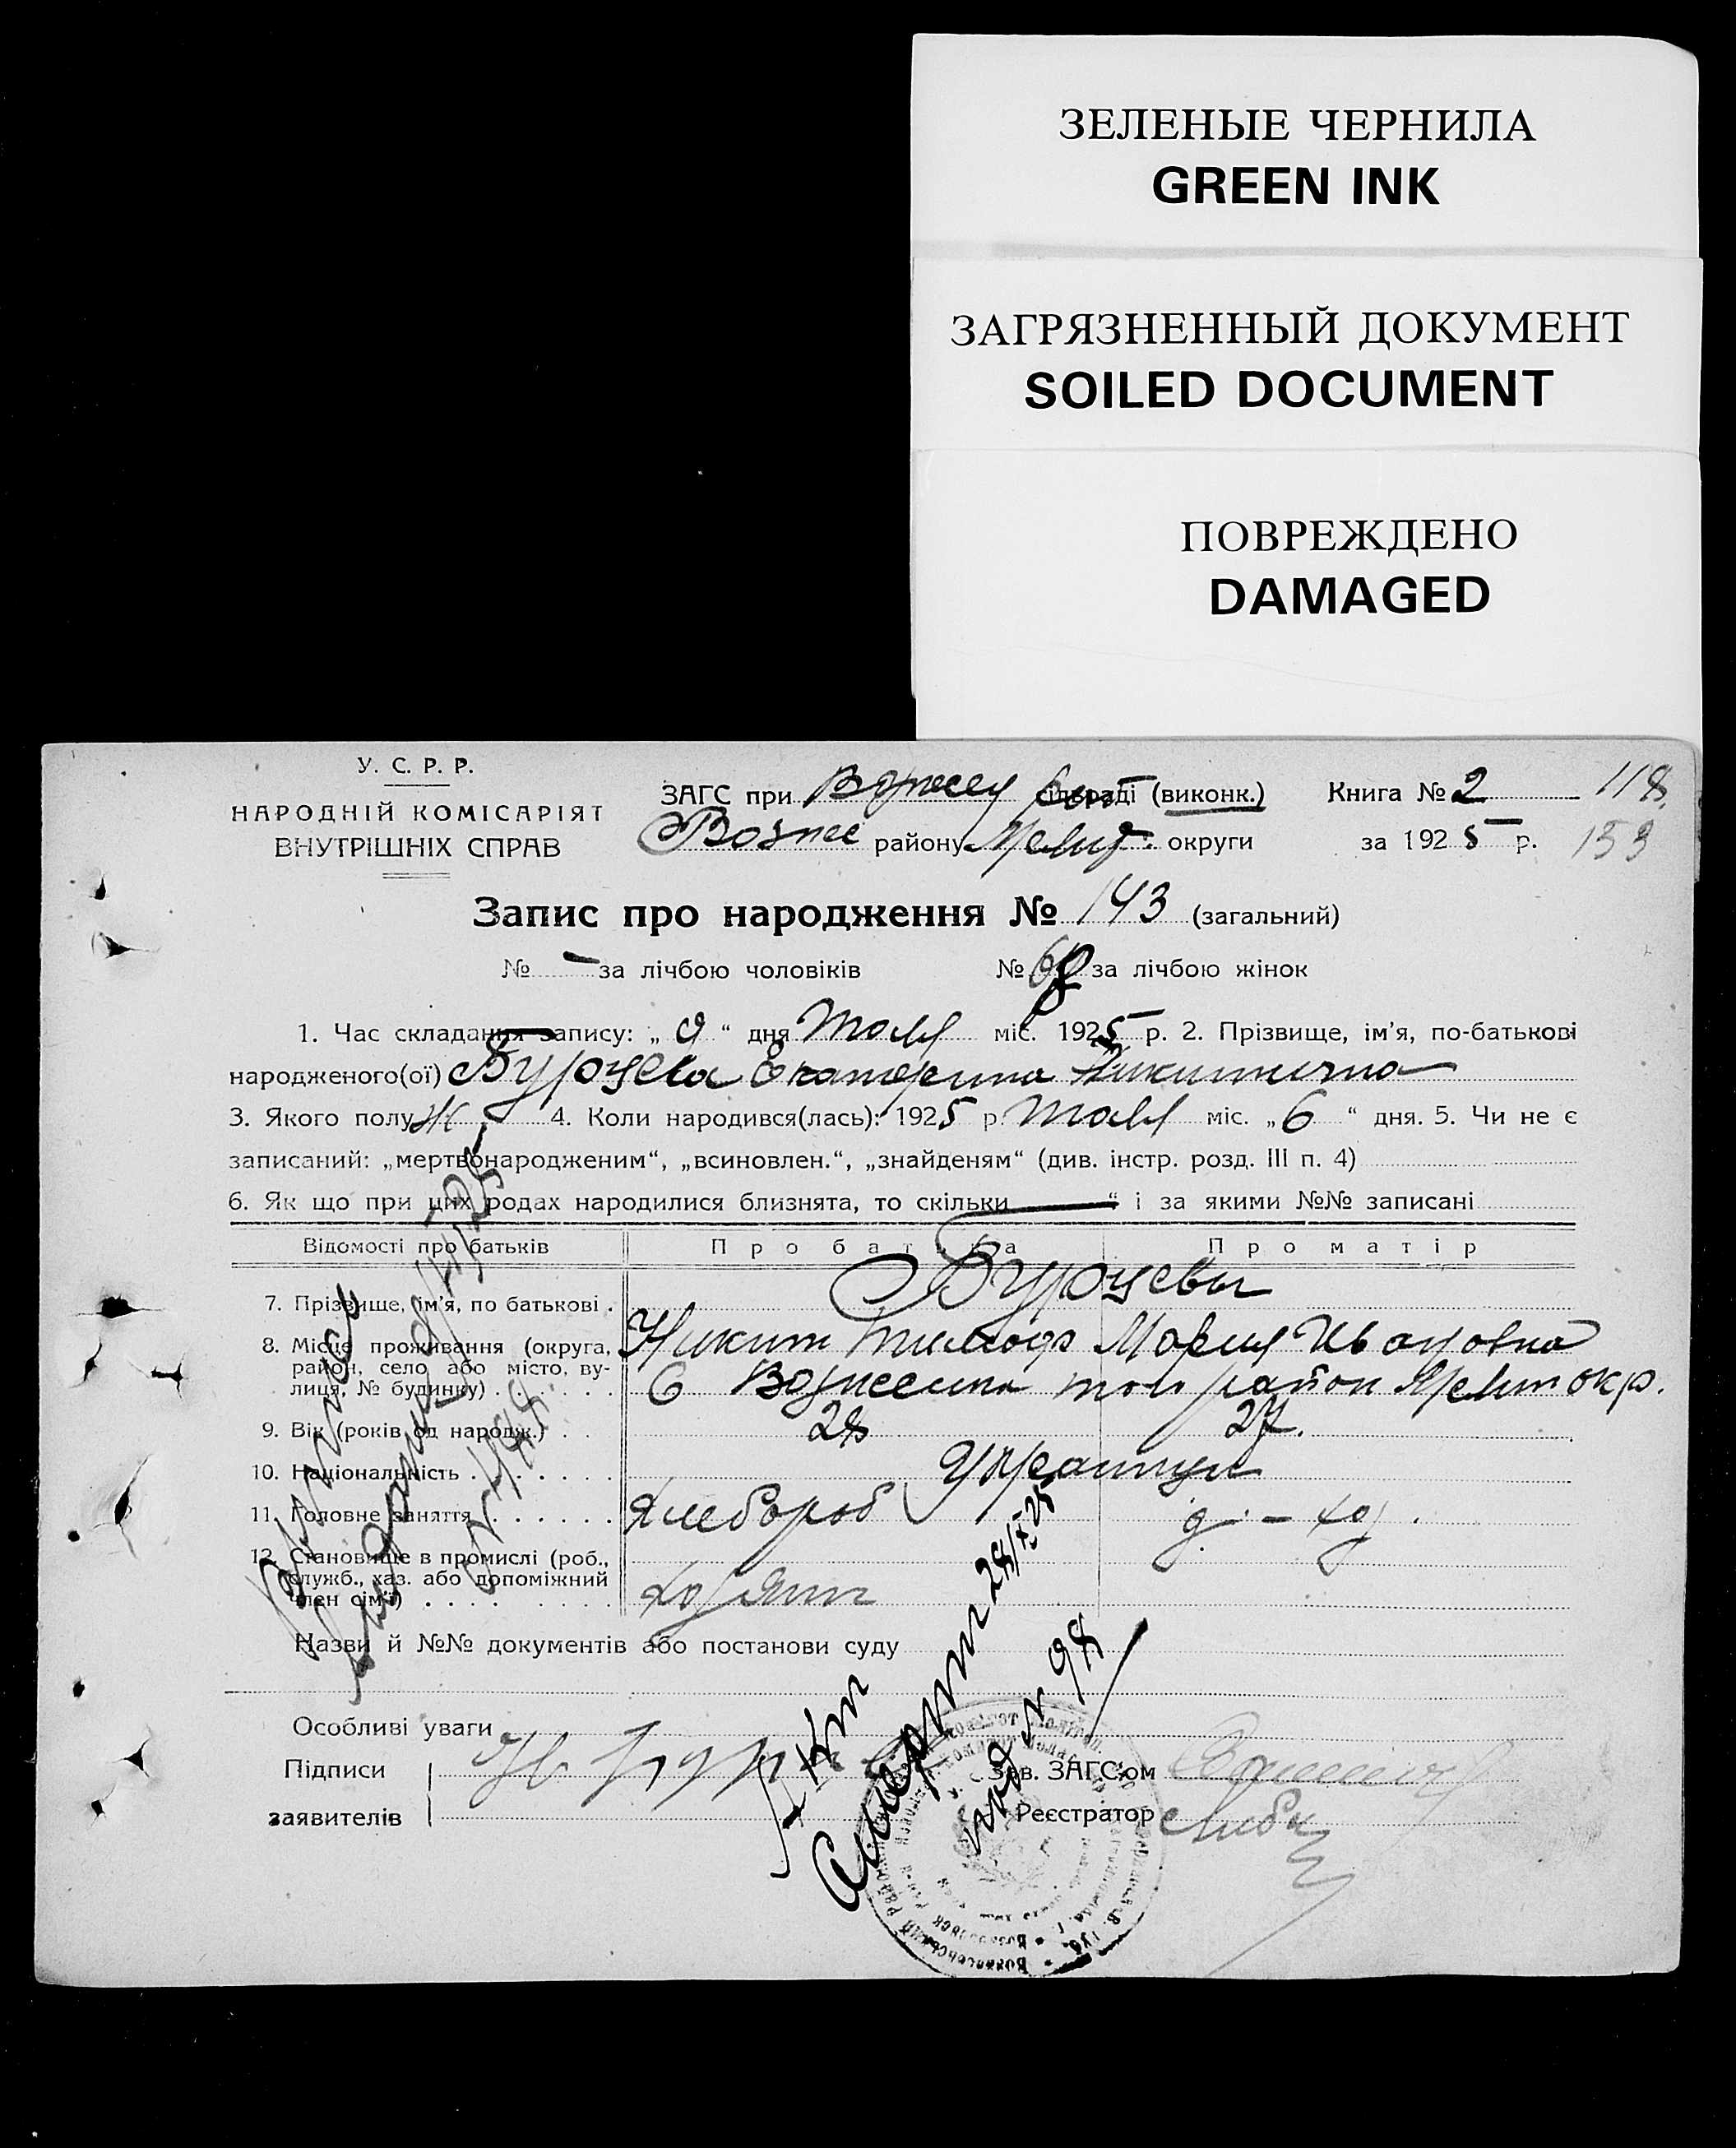 ЗЕЛЕНЫЕ ЧЕРНИЛА
GREEN INK
ЗАГРЯЗНЕННЫЙ ДОКУМЕНТ
SOILED DOCUMENT
ПОВРЕЖДЕНО
DAMAGED
У. С. Р. Р.
НАРОДНІЙ КОМІСАРІЯТ
ВНУТРІШНІХ СПРАВ
ЗАГС при (виконк.)
Вознес району Мелит. округи
Книга № 2
за 1925 р.
118
153
Запис про народження № 143 (загальний)
№ — за лічбою чоловіків № за лічбою жінок
1. Час складання запису: „ 9 “ дня мая міс. 1925 р. 2. Прізвище, ім'я, по-батькові
народженого(ої) Бурцева Екатерина Никитична
3. Якого полу Ж 4. Коли народився(лась): 1925 р. мая міс. „ 6 “ дня. 5. Чи не є
записаний: „мертвонародженим“, „всиновлен.“, „знайденям“ (див. інстр. розд. III п. 4)
6. Як що при цих родах народилися близнята, то скільки — “ і за якими №№ записані
Відомості про батьків Про батька Про матір
7. Прізвище, ім'я, по батькові . Бурцевы
Никит Тимоф Мария Ивановна
8. Місце проживання (округа, район, село або місто, вулиця, № будинку) С Вознесенка того район Мелит окр.
9. Вік (років од народж.) . . 28 27.
10. Національність Украинцы
11. Головне заняття Хлебороб д. – хоз.
12. Становище в промислі (роб., служб., хаз. або допоміжний член сім'ї) хозяин
Назви й №№ документів або постанови суду
Особливі уваги
Підписи
заявителів
Зав. ЗАГС'ом
Реєстратор